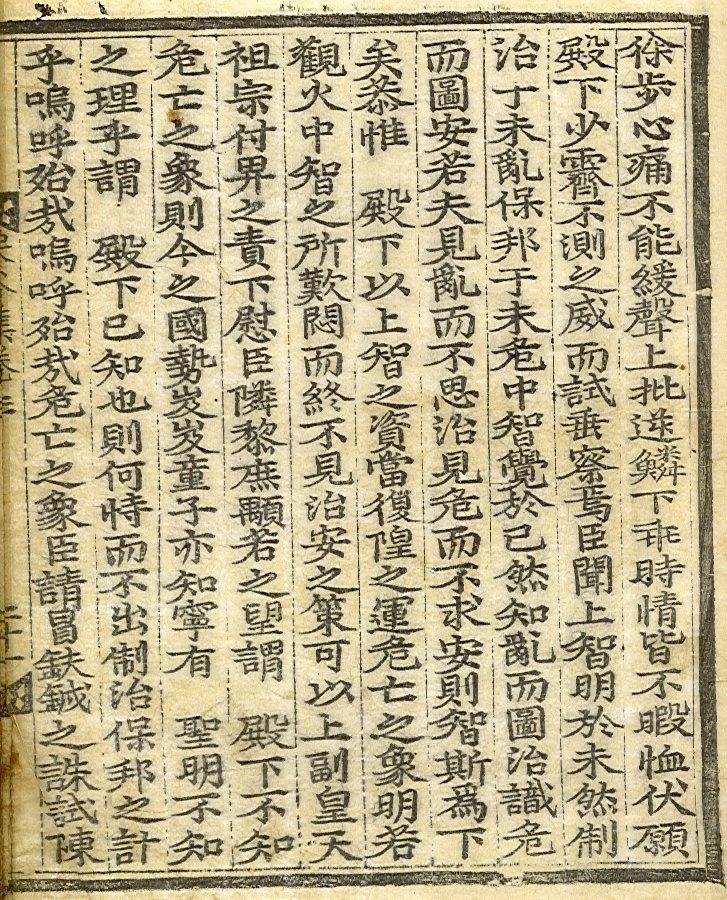 徐步心痛不能緩聲上批逆鱗下乖時情皆不暇恤伏願
殿下少霽不測之威而試垂察焉臣聞上智明於未然制
治于未亂保邦于未危中智覺於已然知亂而圖治識危
而圖安若夫見亂而不思治見危而不求安則智斯爲下
矣恭惟　殿下以上智之資當復隍之運危亡之象明若
觀火中智之所歎悶而終不見治安之策可以上副皇天
祖宗付畀之責下慰臣隣黎庶顒若之望謂　殿下不知
危亡之象則今之國勢岌岌童子亦知寧有　聖明不知
之理乎謂　殿下已知也則何恃而不出制治保邦之計
乎嗚呼殆哉嗚呼殆哉危亡之象臣請冒鈇鉞之誅試陳